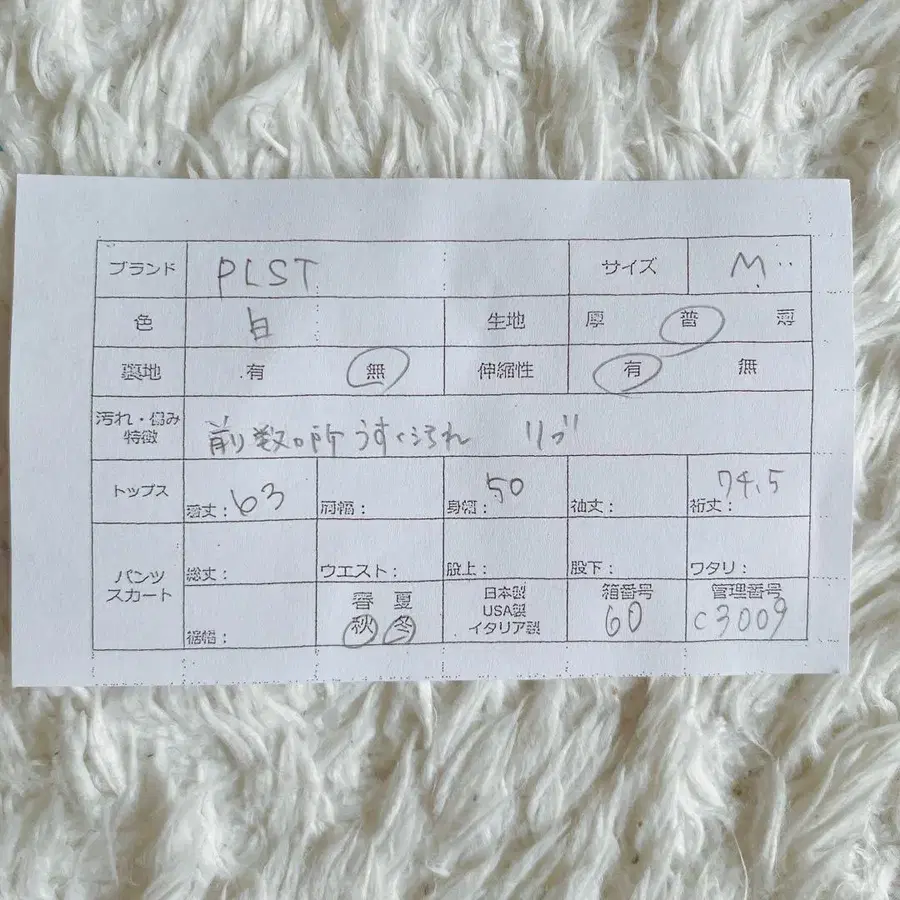 ブランド PLST サイズ M
色 白 生地 厚 普 薄
裏地 有 無 伸縮性 有 無
汚れ・傷み 特徴 前数ヶ所うすく汚れ リブ
トップス 着丈: 63 肩幅: 身幅: 50 袖丈: 裄丈: 74.5
パンツ スカート 総丈: ウエスト: 股上: 股下: ワタリ:
裾幅: 春 夏 秋 冬 日本製 USA製 イタリア製 箱番号 60 管理番号 C3009